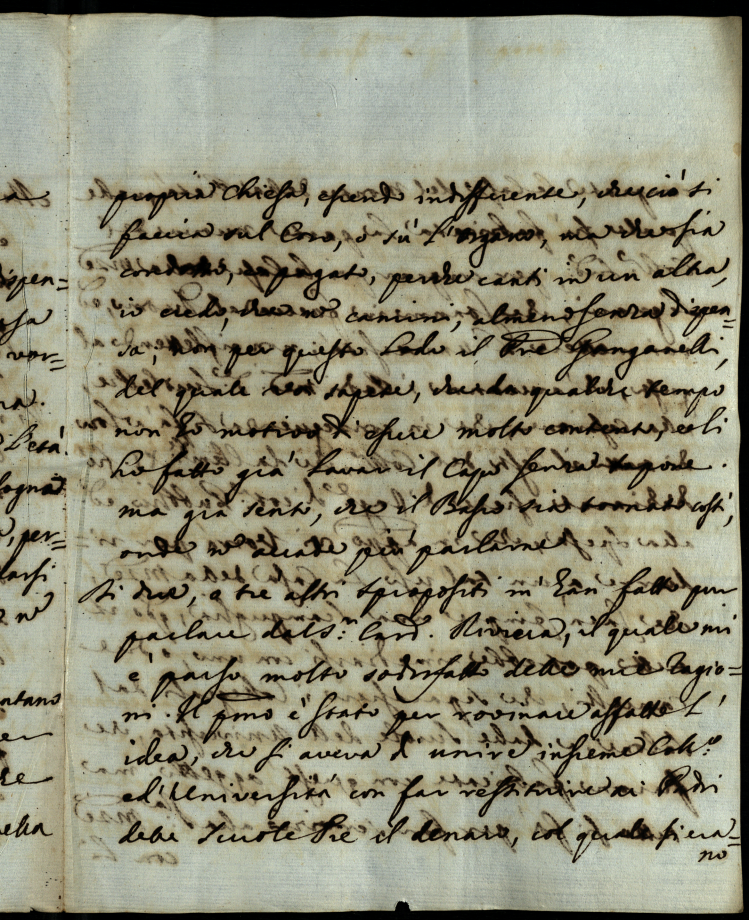 a
propria Chiesa, essend indifferente, che ciò si
faccia sul Coro, o sù l'organo, ma che sia
condotto, e pagato, perche canti in un altra,
ispen=
io credo, che nō cammini, almeno senza dispen=
sa, non per questo lodo il Pre Ganganelli,
del quale sapete, che da qualche tempo
non ho motivo d'essere molto contento, e li
L'età
ho fatto già lavar il Capo senza sapone.
ma già sento, che il Basso sia tornato costì,
, per=
onde nō accade più parlarne.
arsi
Di due, o tre altri spropositi m'han fatto pur
nō
parlare dal S.r Card. Riviera, il quale mi
è parso molto sodisfatto delle mie ragio=
ntano
ni. Il pmo è stato per rovinare affatto l'
er
idea, che si aveva d'unire insieme Coll.o
re
ed'Università con far restituire ai Padri
delle Scuole Pie il denaro, col quale si era=
no